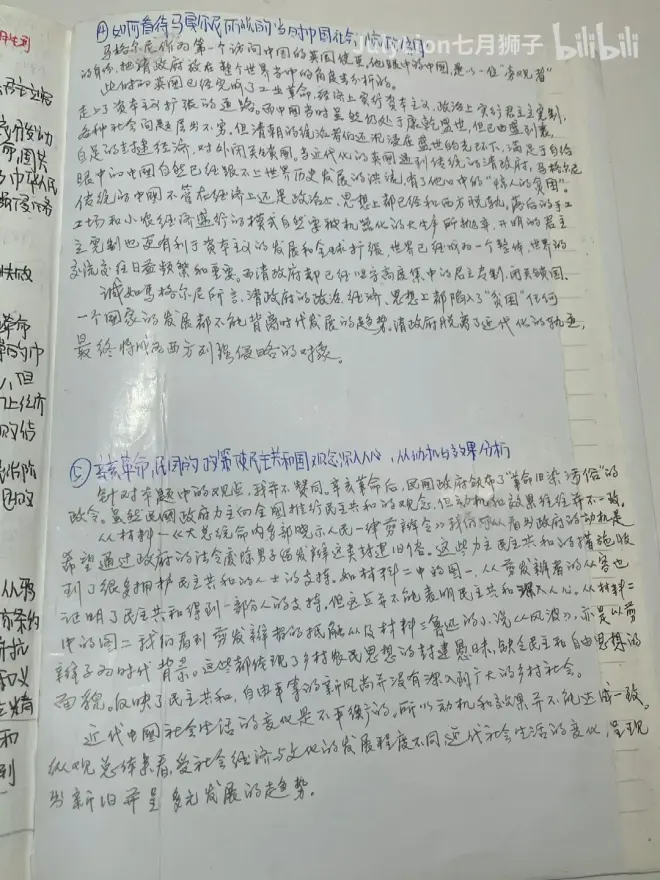 JulyLion七月狮子 bilibili
④如何看待马戛尔尼所说的当时中国社会
马格尔尼作为第一个访问中国的英国使臣,他眼中的中国,是以一位"旁观者"
的身份,把清政府放在整个世界当中的角度去分析的。
此时的英国已经完成了工业革命,经济上实行资本主义,政治上实行君主立宪制,
走上了资本主义扩张的道路。而中国当时虽然仍处于康乾盛世,但已由盛到衰,
各种社会问题层出不穷。但清朝的统治者们还沉浸在盛世的光环下,满足于自给
自足的封建经济,对外闭关锁国。当近代化的英国遇到传统的清政府,马格尔尼
眼中的中国自然已经跟不上世界历史发展的洪流,有了他口中的"惊人的贫困"。
传统的中国不管在经济上还是政治上、思想上都已经和西方脱轨。落后的手工
工场和小农经济进行的模式自然要被机器化的大生产所抛弃,开明的君主
立宪制也更有利于资本主义的发展和全球扩张,世界已经成为一个整体,世界的
交流交往日益频繁和重要。而清政府却已经固守高度集中的君主专制,闭关锁国。
诚如马格尔尼所言,清政府的政治、经济、思想上都陷入了"贫困"任何
一个国家的发展都不能背离时代发展的趋势。清政府脱离了近代化的轨道,
最终将成为西方列强侵略的对象。
⑤辛亥革命,民国的政策使民主共和国观念深入人心,从动机与效果分析
针对本题中的观点,我并不赞同。辛亥革命后,民国政府颁布了"革命旧染污俗"的
政令。虽然民国政府力主向全国推行民主共和的观念,但动机和效果往往并不一致。
从材料一《大总统命内务部晓示人民一律剪辫令》我们可以看出政府的动机是
希望通过政府的法令废除男子留发辫这类封建旧俗。这些力主民主共和的措施收
到了很多拥护民主共和的人士的支持。如材料二中的图一,从剪发辫者的从容也
证明了民主共和得到一部分人的支持。但这点并不能表明民主共和深入人心。从材料二
中的图二我们看到剪发辫者的抵触以及材料三鲁迅的小说《风波》,亦是以剪
辫子为时代背景。这些都体现了乡村农民思想的封建愚昧,缺乏民主和自由思想的
面貌。反映了民主共和,自由平等的新风尚并没有深入到广大的乡村社会。
近代中国社会生活的变化是不平衡的。所以动机和效果并不能达成一致。
纵观总体来看,受社会经济与文化的发展程度不同,近代社会生活的变化,呈现
出新旧并呈多元发展的趋势。